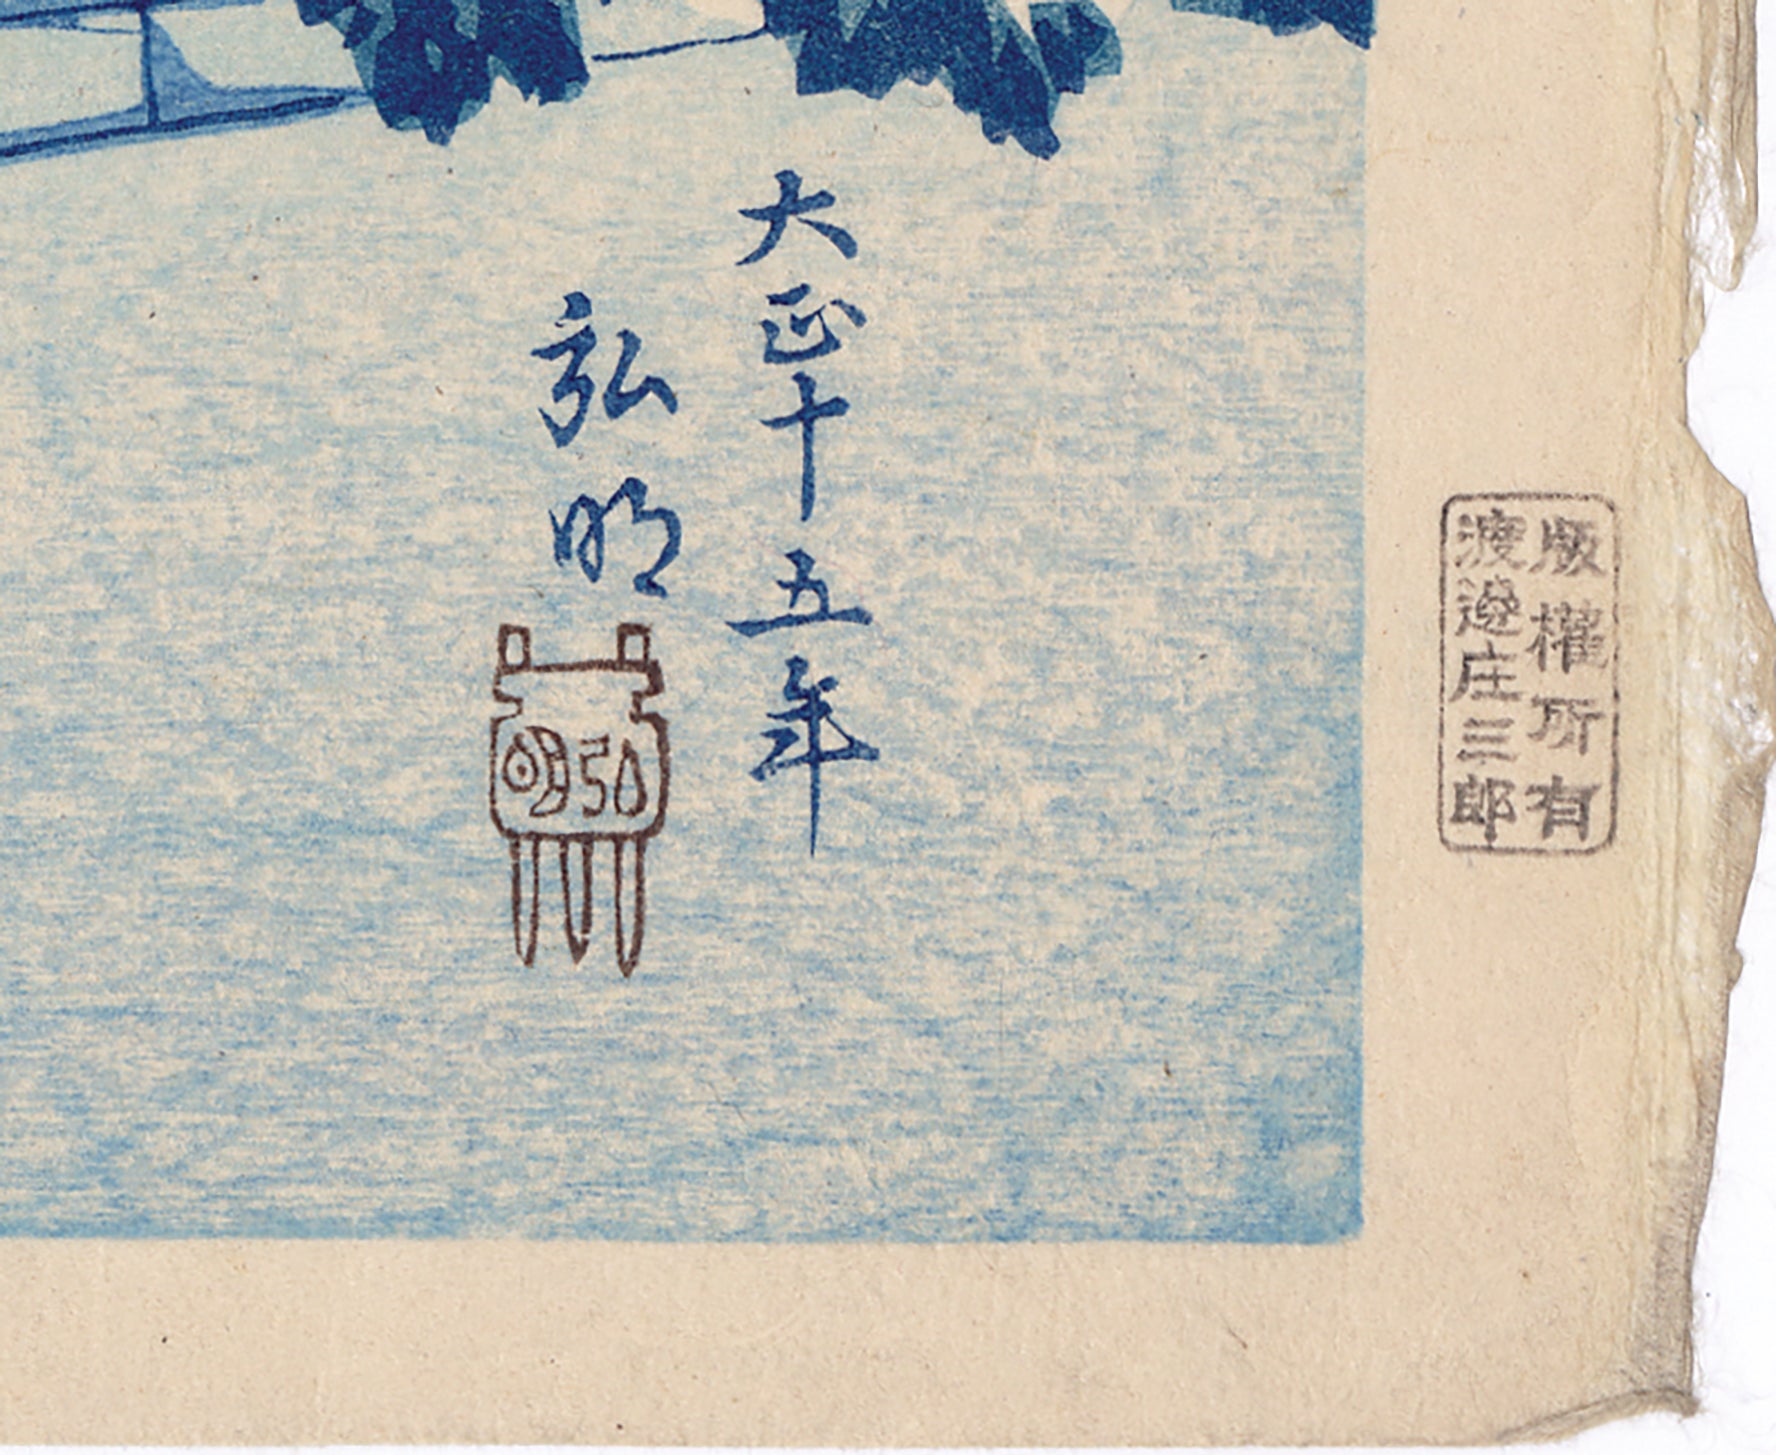 大正十五年
弘明
弘明
版權所有
渡邊庄三郎